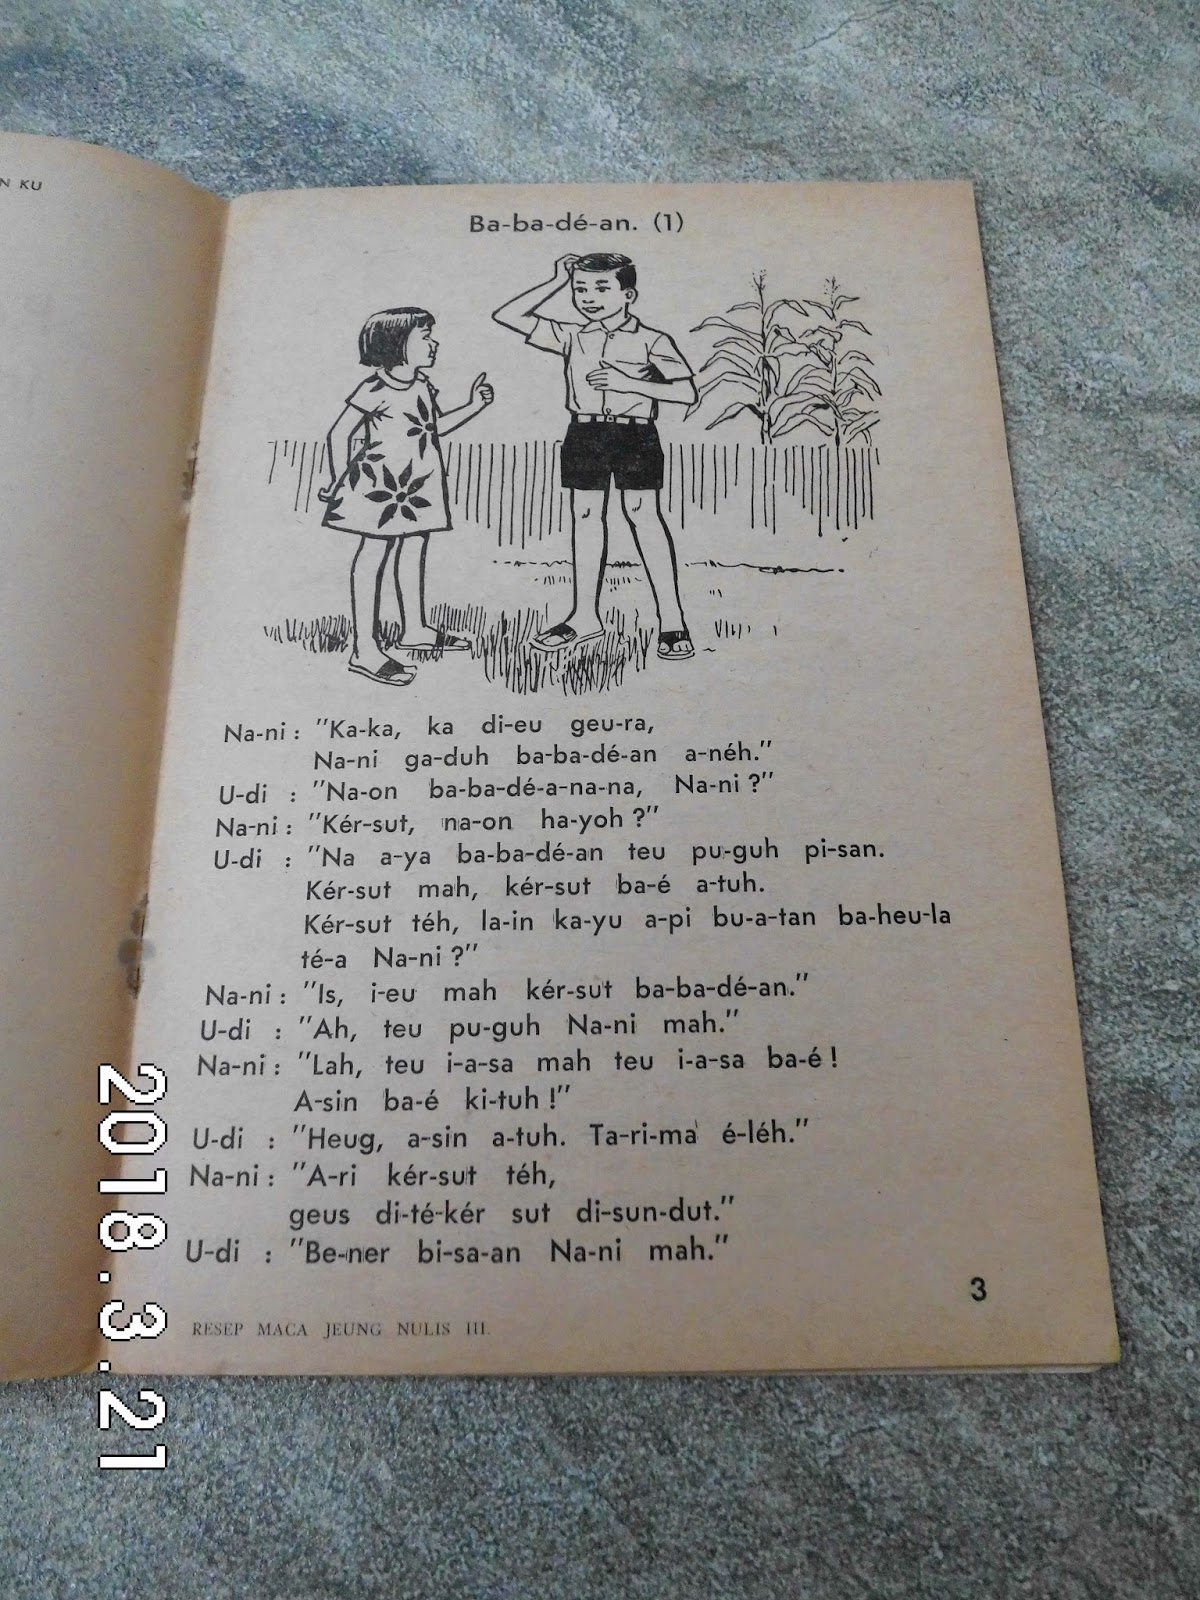 N KU
Ba-ba-dé-an. (1)
Na-ni : "Ka-ka, ka di-eu geu-ra,
Na-ni ga-duh ba-ba-dé-an a-néh."
U-di : "Na-on ba-ba-dé-a-na-na, Na-ni ?"
Na-ni : "Kér-sut, na-on ha-yoh ?"
U-di : "Na a-ya ba-ba-dé-an teu pu-guh pi-san.
Kér-sut mah, kér-sut ba-é a-tuh.
Kér-sut téh, la-in ka-yu a-pi bu-a-tan ba-heu-la
té-a Na-ni ?"
Na-ni : "Is, i-eu mah kér-sut ba-ba-dé-an."
U-di : "Ah, teu pu-guh Na-ni mah."
Na-ni : "Lah, teu i-a-sa mah teu i-a-sa ba-é !
A-sin ba-é ki-tuh !"
U-di : "Heug, a-sin a-tuh. Ta-ri-ma é-léh."
Na-ni : "A-ri kér-sut téh,
geus di-té-kér sut di-sun-dut."
U-di : "Be-ner bi-sa-an Na-ni mah."
3
RESEP MACA JEUNG NULIS III.
2018.3.21